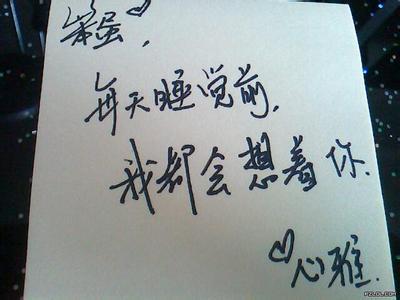 笨蛋♡,
每天睡觉前,
我都会想着你.
♡心雅.